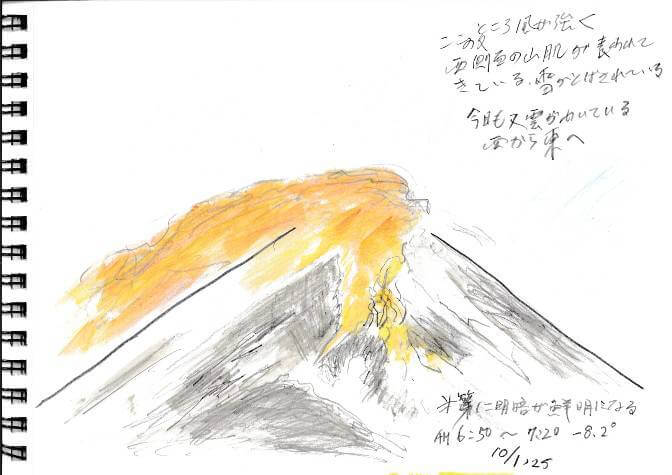 ところ風が強く
西側面の山肌が表われて
きている、雪がとばされている
今日も又雲がわいている
西から東へ
次第に明暗が鮮明になる
AM 6:50～7:20 -8.2°
10/1,25